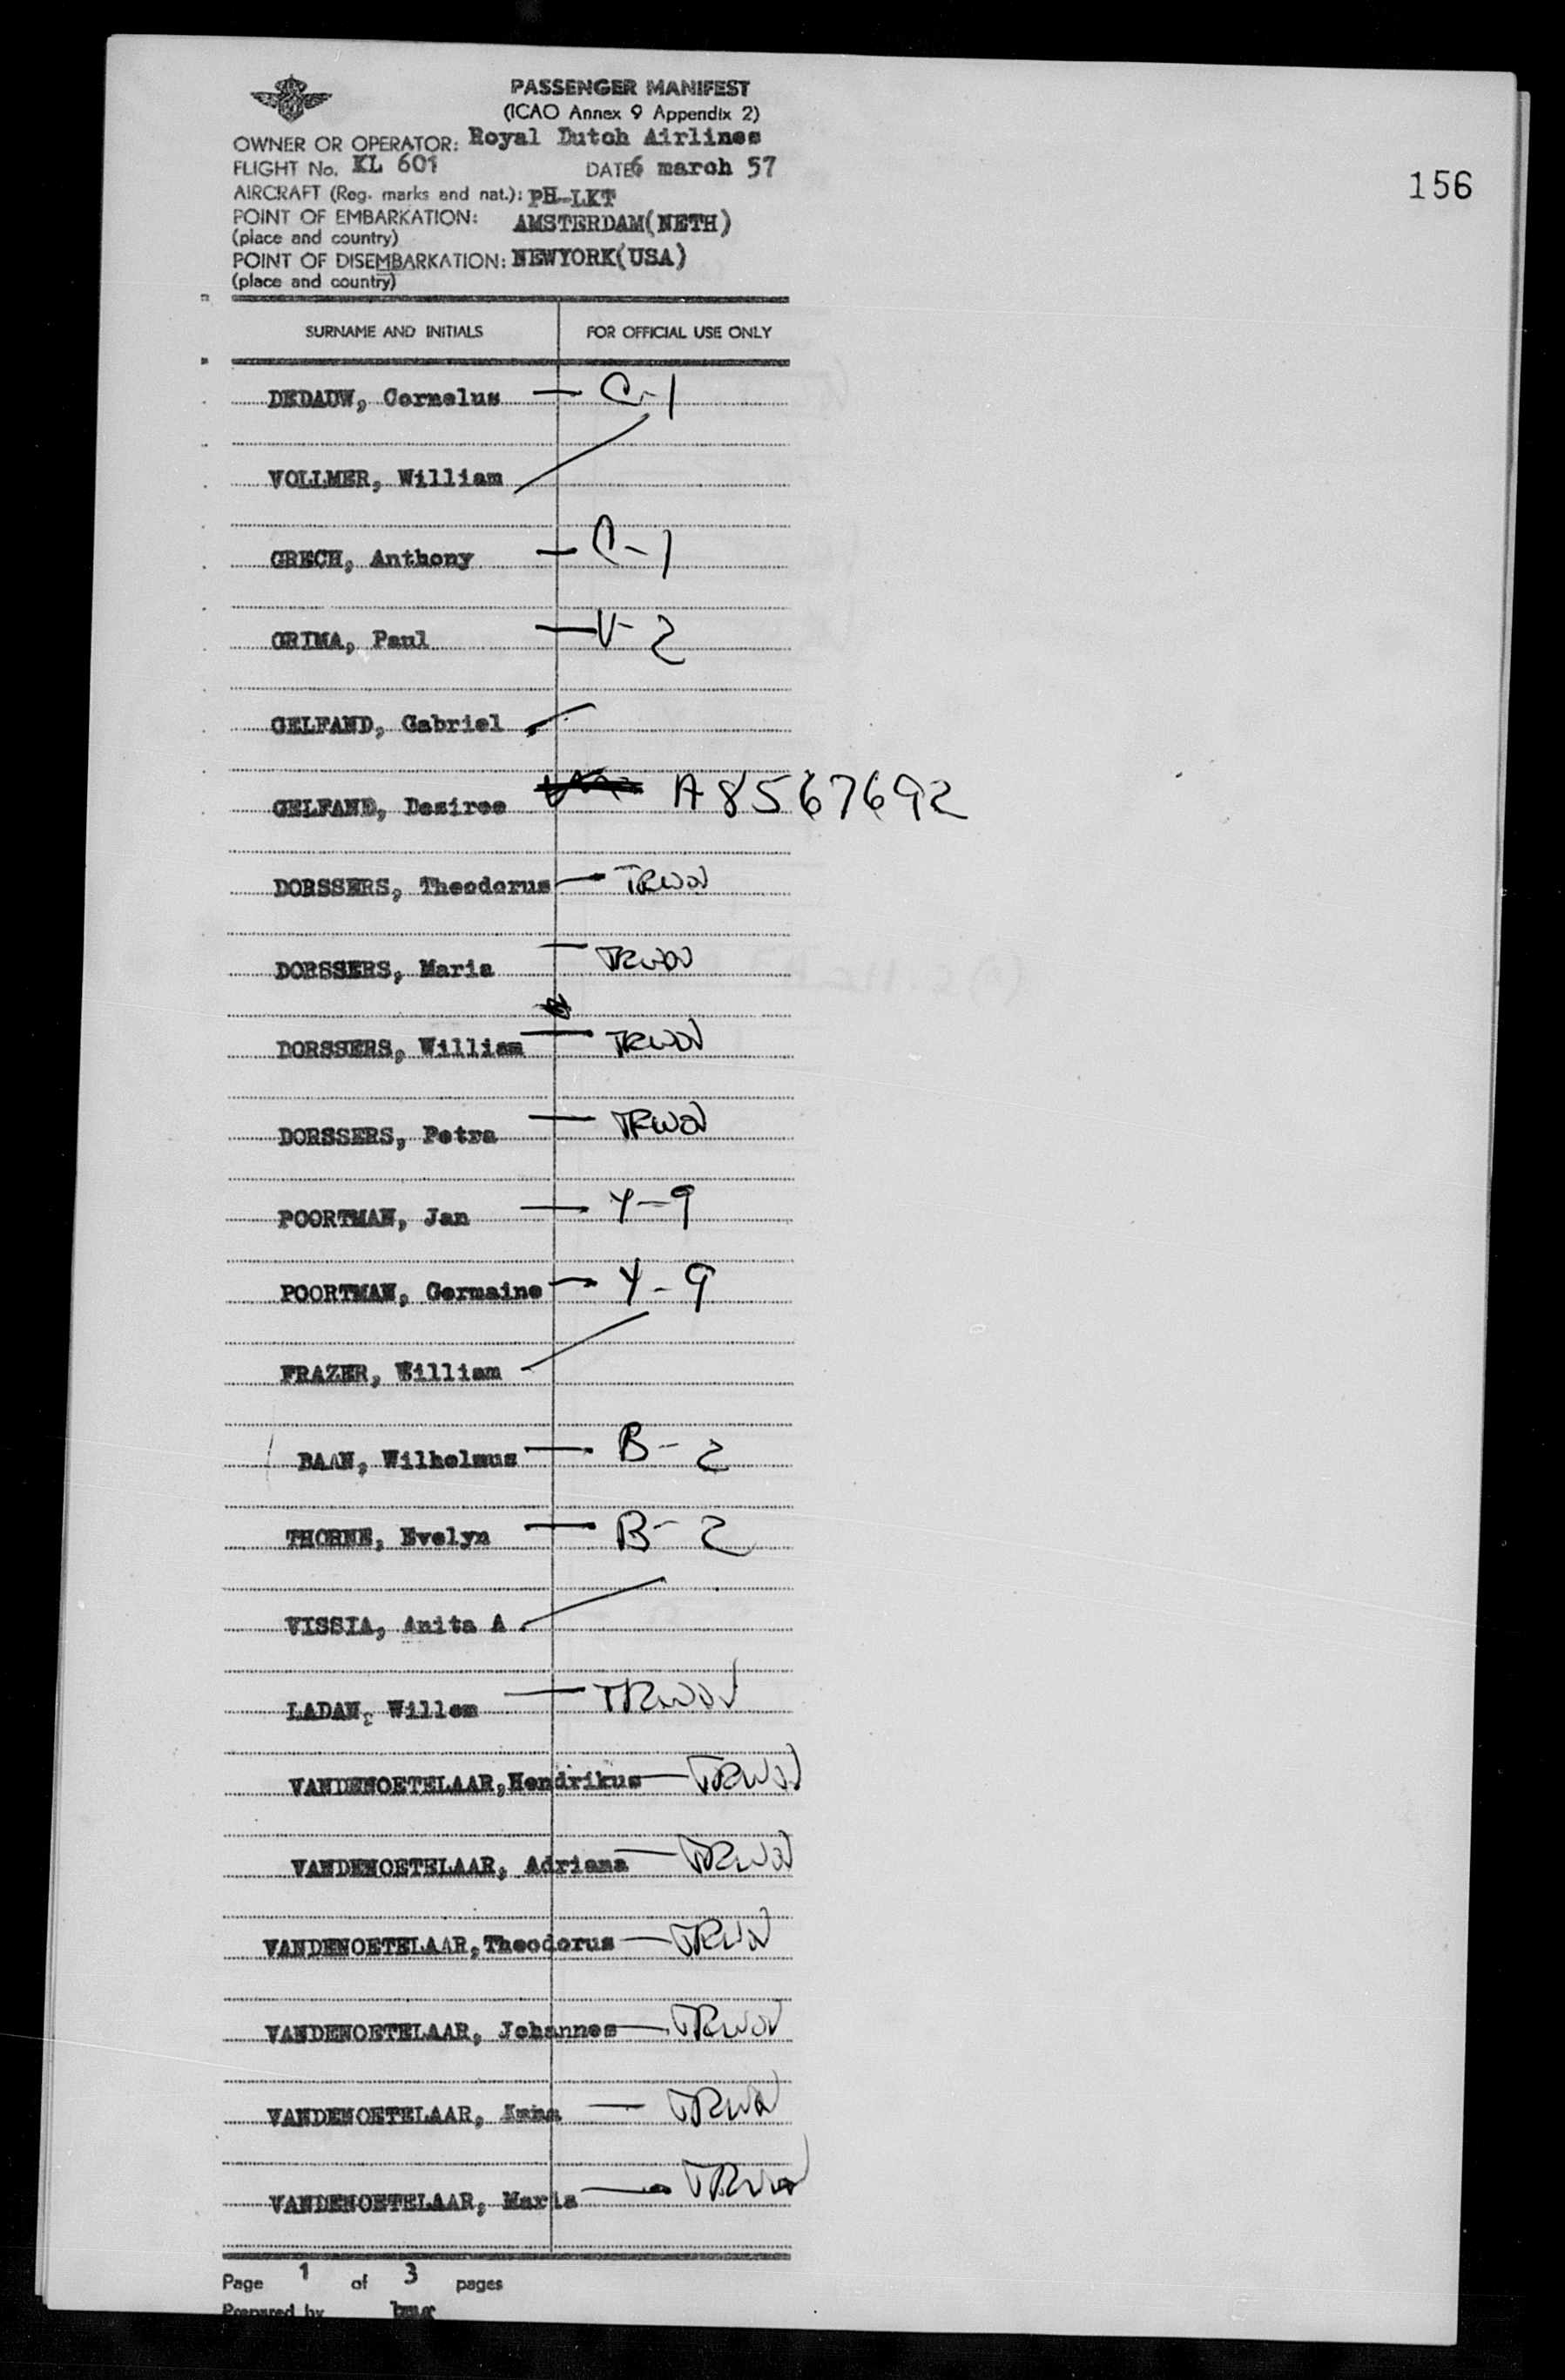 PASSENGER MANIFEST
(ICAO Annex 9 Appendix 2)
OWNER OR OPERATOR: Royal Dutch Airlines
FLIGHT No. KL 601 DATE 6 march 57
156
AIRCRAFT (Reg. marks and nat.): PH-LKT
POINT OF EMBARKATION: AMSTERDAM(NETH)
(place and country)
POINT OF DISEMBARKATION: NEWYORK(USA)
(place and country)
SURNAME AND INITIALS FOR OFFICIAL USE ONLY
DEDAUW, Cornelus — C-1
VOLLMER, William
GRECH, Anthony — C-1
GRIMA, Paul — V-2
GELFAND, Gabriel
GELFAND, Desiree A8567692
DORSSERS, Theodorus — TRWOV
DORSSERS, Maria — TRWOV
DORSSERS, William — TRWOV
DORSSERS, Petra — TRWOV
POORTMAN, Jan — Y-9
POORTMAN, Germaine — Y-9
FRAZER, William
BAAN, Wilhelmus — B-2
THORNE, Evelyn — B-2
VISSIA, Anita A
LADAN, Willem — TRWOV
VANDENOETELAAR,Hendrikus — TRWOV
VANDENOETELAAR, Adriana — TRWOV
VANDENOETELAAR,Theodorus — TRWOV
VANDENOETELAAR, Johannes — TRWOV
VANDENOETELAAR, — TRWOV
VANDENOETELAAR, Maria — TRWOV
Page 1 of 3 pages
Prepared by